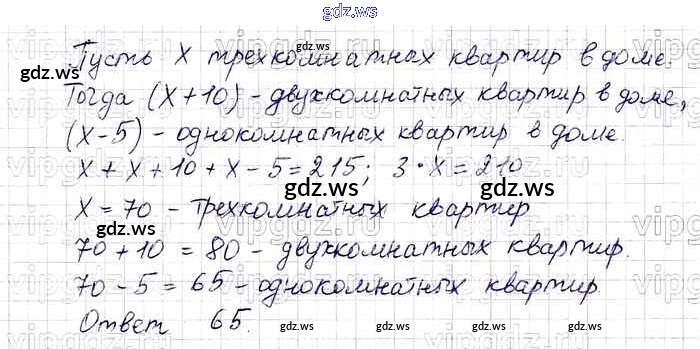 gdz.ws
Пусть X трехкомнатных квартир в доме.
gdz.ws gdz.ws
Тогда (X+10) - двухкомнатных квартир в доме,
(X-5) - однокомнатных квартир в доме.
X + X + 10 + X - 5 = 215; 3 * X = 210
gdz.ws gdz.ws
X = 70 - трехкомнатных квартир
70 + 10 = 80 - двухкомнатных квартир.
gdz.ws gdz.ws
70 - 5 = 65 - однокомнатных квартир.
Ответ 65.
gdz.ws gdz.ws gdz.ws